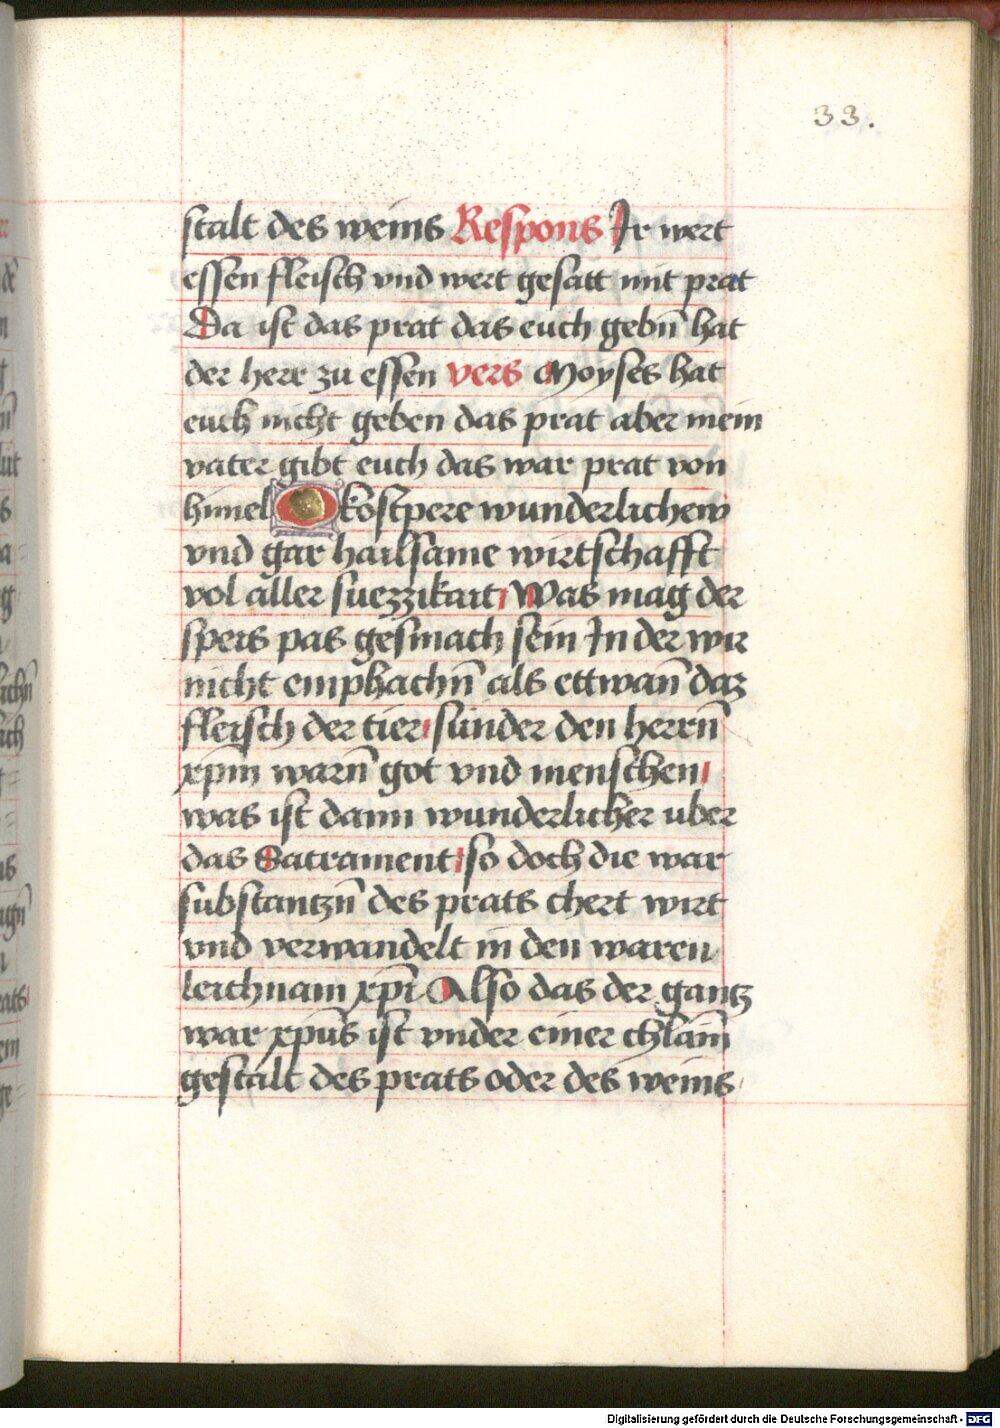 33.
stalt des weins Respons Ir wert
essen fleisch vnd wert gesatt mit prat
Da ist das prat das euch gebn̄ hat
der herr zu essen vers Moyses hat
euch nicht geben das prat aber mein
vater gibt euch das war prat von
himel O kostpere wunderlichew
vnd gar hailsame wirtschafft
vol aller suezzikait Was mag der
speis pas gesmach sein In der wir
nicht emphachn̄ als ettwan̄ daz
fleisch der tier sunder den herrn̄
xp̄m warn̄ got vnd menschen
was ist dann wunderlicher uber
das Sacrament so doch die war
substantzn̄ des prats chert wirt
vnd verwandelt in den waren
leichnam xp̄i Also das der gantz
war xp̄us ist vnder einer chlain̄
gestalt des prats oder des weins
Digitalisierung gefördert durch die Deutsche Forschungsgemeinschaft - DFG